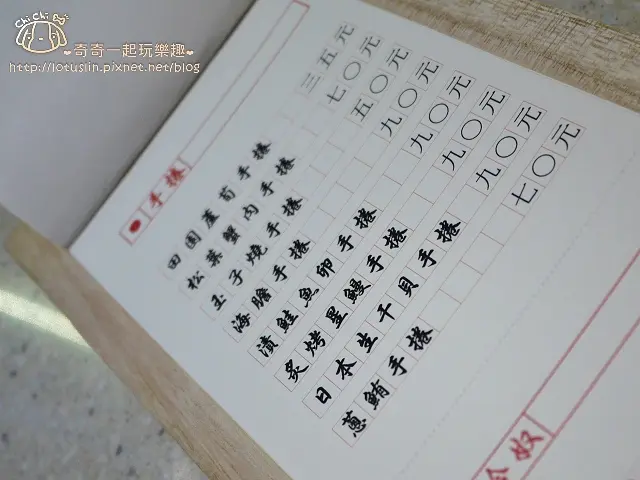 Chi Chi Bo
奇奇一起玩樂趣
http://lotuslin.pixnet.net/blog
手捲
田園蘆筍手捲 三五元
松葉蟹肉手捲 七〇元
玉子燒手捲 五〇元
海膽手捲 九〇元
漬鮭魚卵手捲 九〇元
炙烤星鰻手捲 九〇元
日本生干貝手捲 九〇元
蔥鮪手捲 七〇元
冷奴